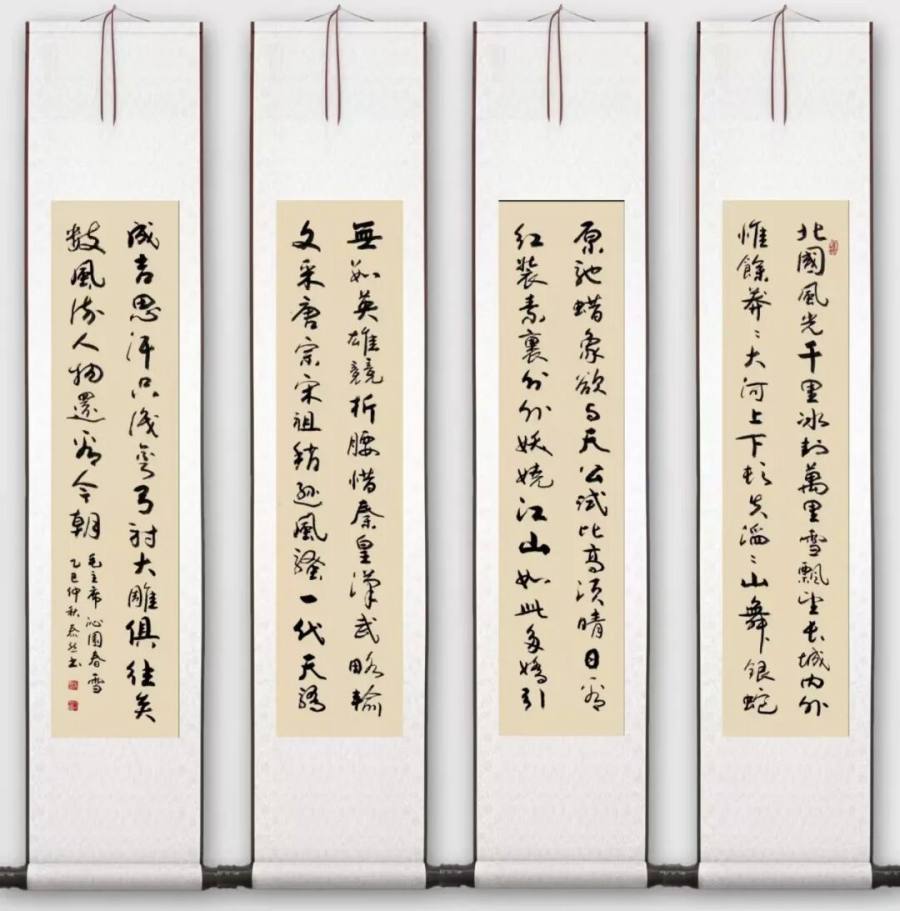 北國風光千里冰封萬里雪飄望長城内外
惟餘莽〻大河上下頓失滔〻山舞銀蛇
原馳蜡象欲与天公試比高須晴日看
红裝素裹分外妖嬈江山如此多嬌引
無數英雄競折腰惜秦皇漢武略輸
文采唐宗宋祖稍遜風騷一代天驕
成吉思汗只識彎弓射大雕俱往矣
數風流人物還看今朝
毛主席沁園春雪
乙巳仲秋